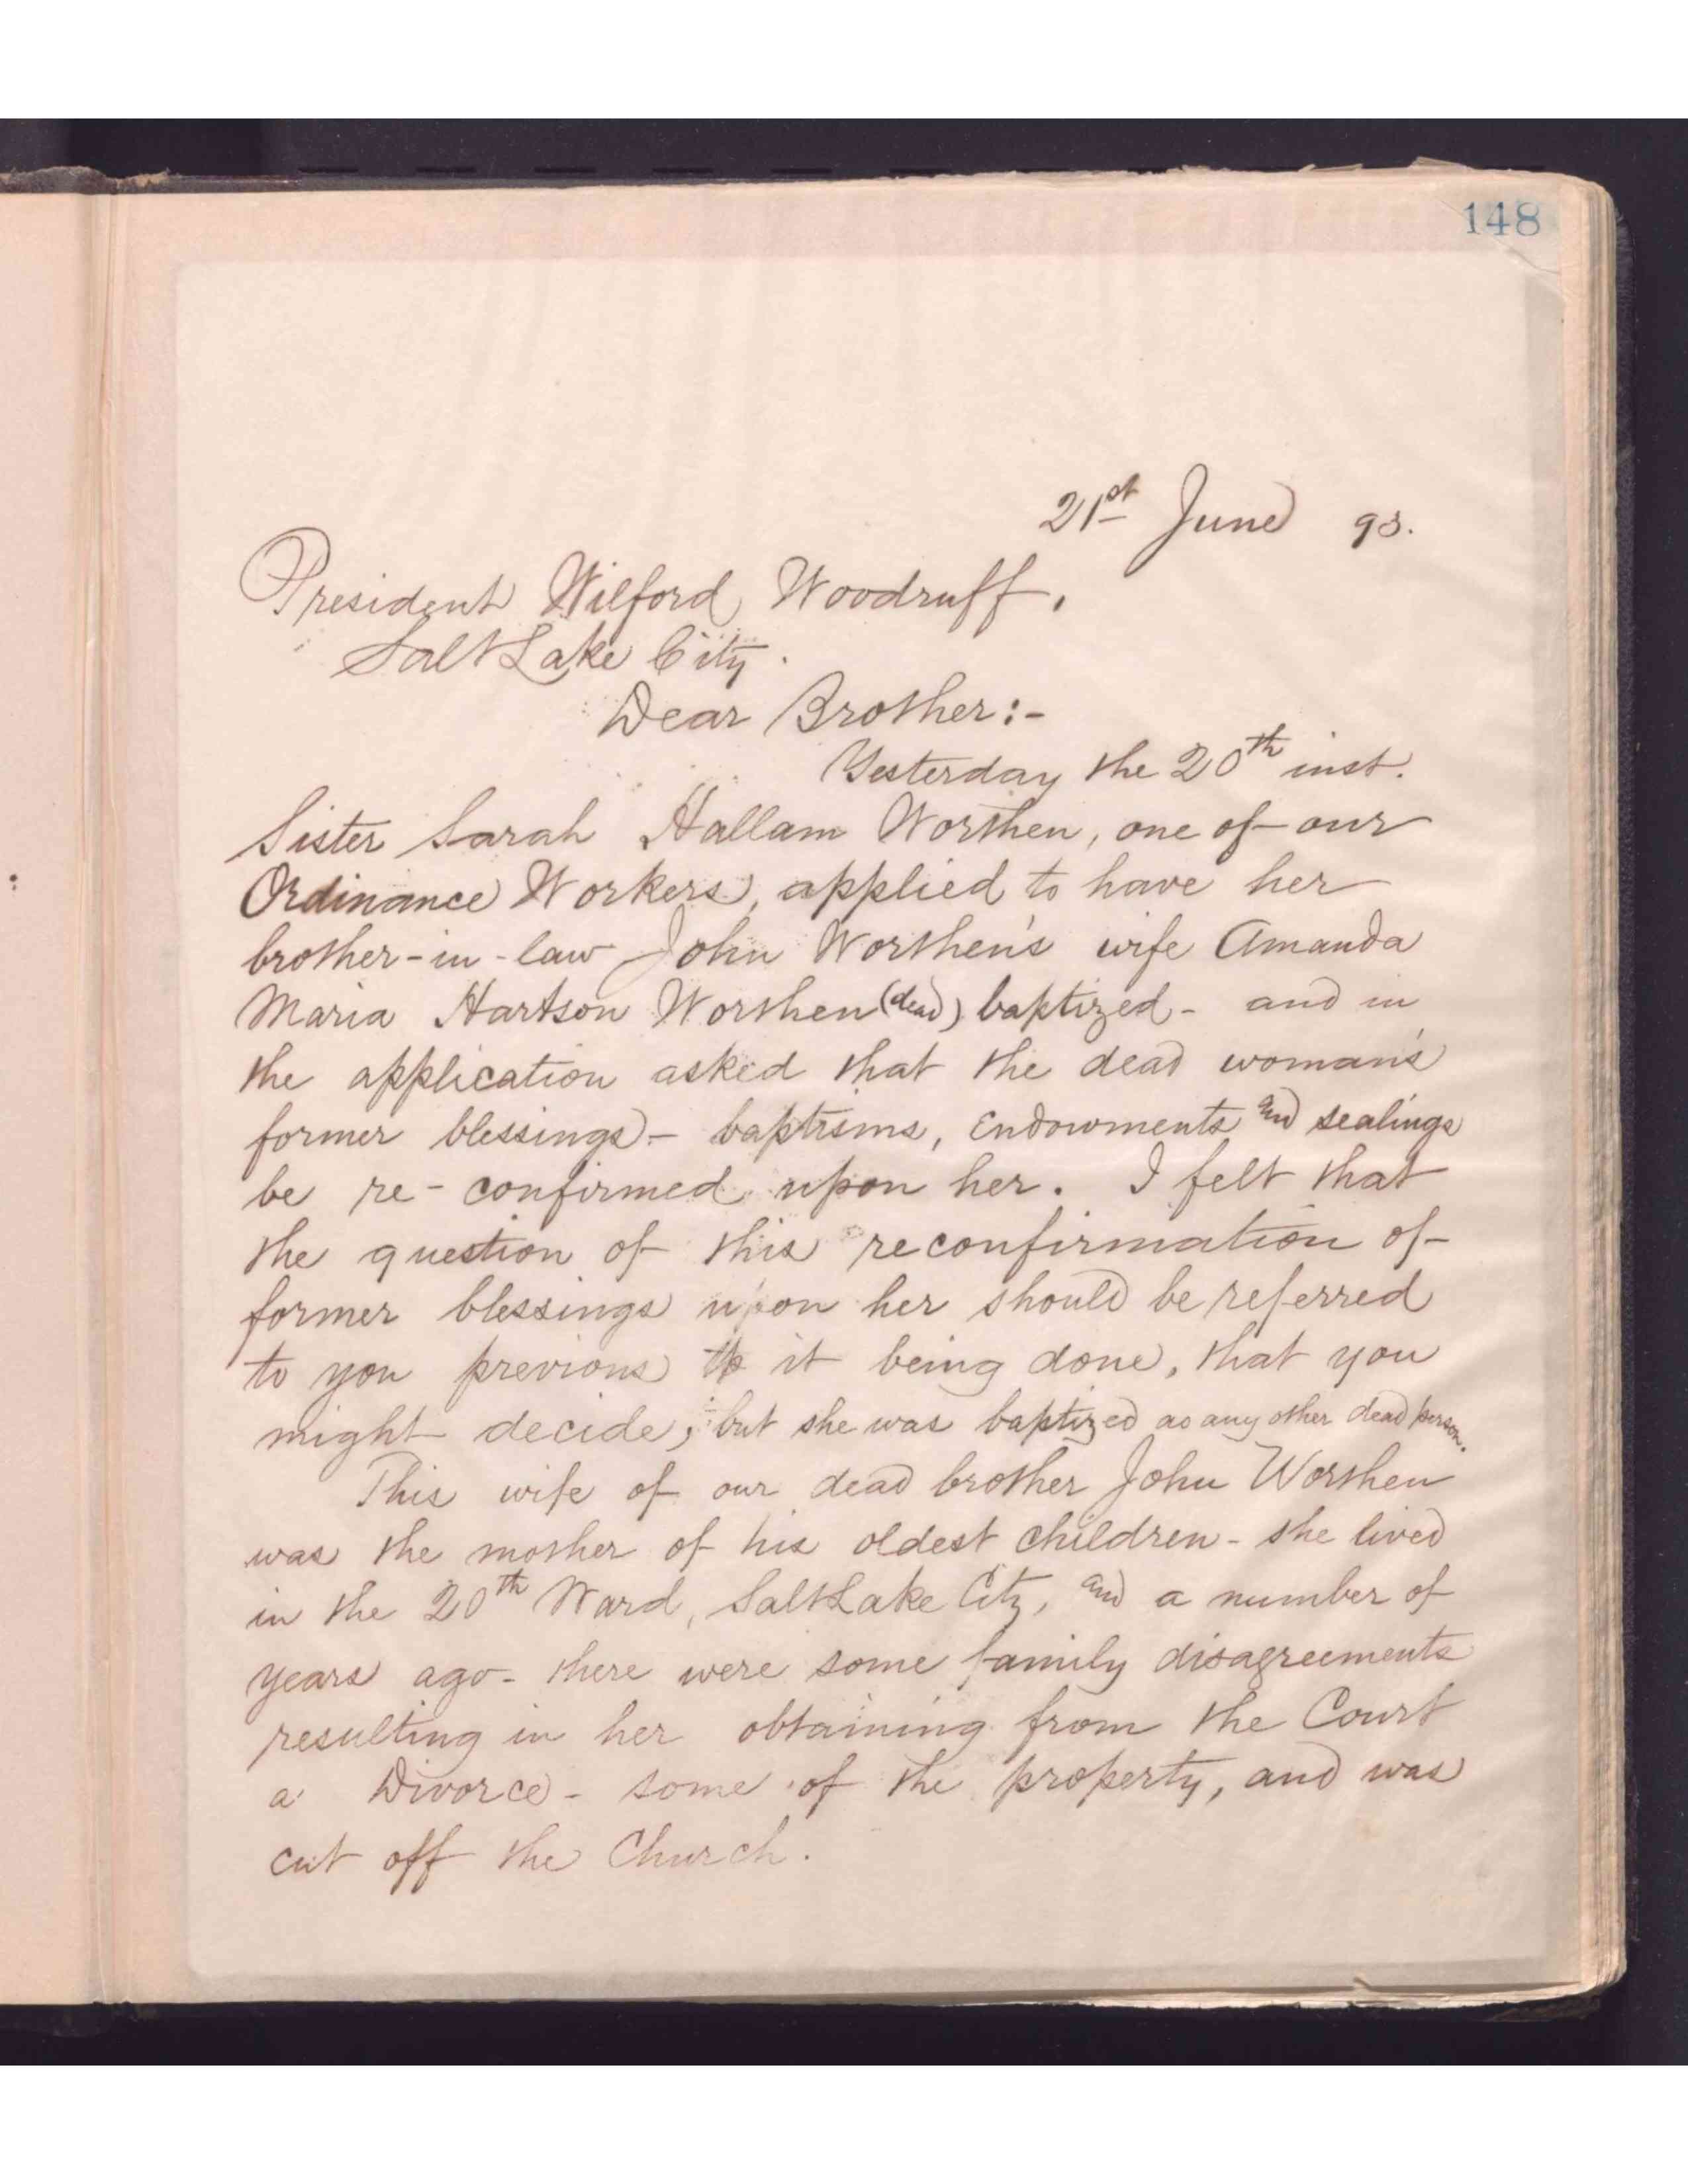 148
21st June 93.
President Wilford Woodruff.
Salt Lake City.
Dear Brother:-
Yesterday the 20th inst.
Sister Sarah Hallam Worthen, one of our
Ordinance Workers, applied to have her
brother-in-law John Worthen's wife Amanda
Maria Hartson Worthen (dead) baptized - and in
the application asked that the dead woman's
former blessings - baptisms, Endowments and sealings
be re-confirmed upon her. I felt that
the question of this reconfirmation of
former blessings upon her should be referred
to you previous to it being done, that you
might decide, but she was baptized as any other dead person.
This wife of our dead brother John Worthen
was the mother of his oldest children - she lived
in the 20th Ward, Salt Lake City, and a number of
years ago - there were some family disagreements
resulting in her obtaining from the Court
a Divorce - some of the property, and was
cut off the Church.